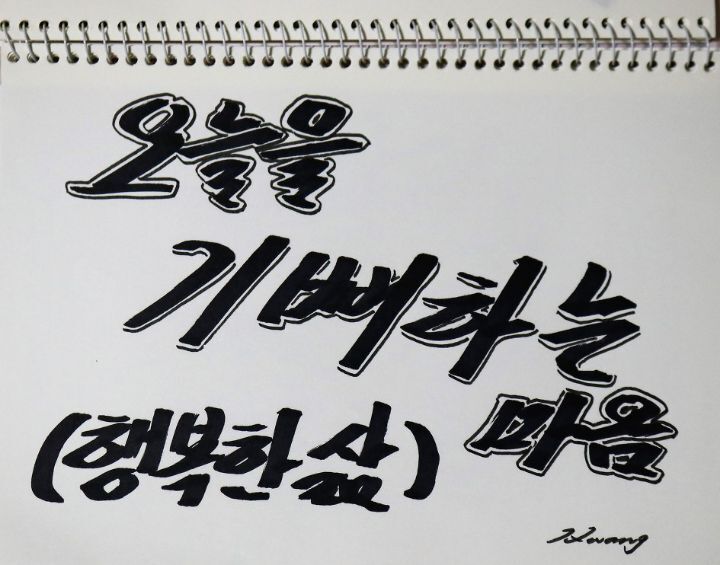 오늘을
기뻐하는
마음
(행복한 삶)
Hwang